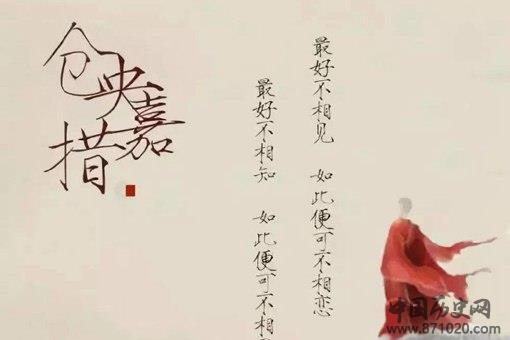 仓央嘉措
最好不相见 如此便可不相恋
最好不相知 如此便可不相
中国历史网
www.871020.com